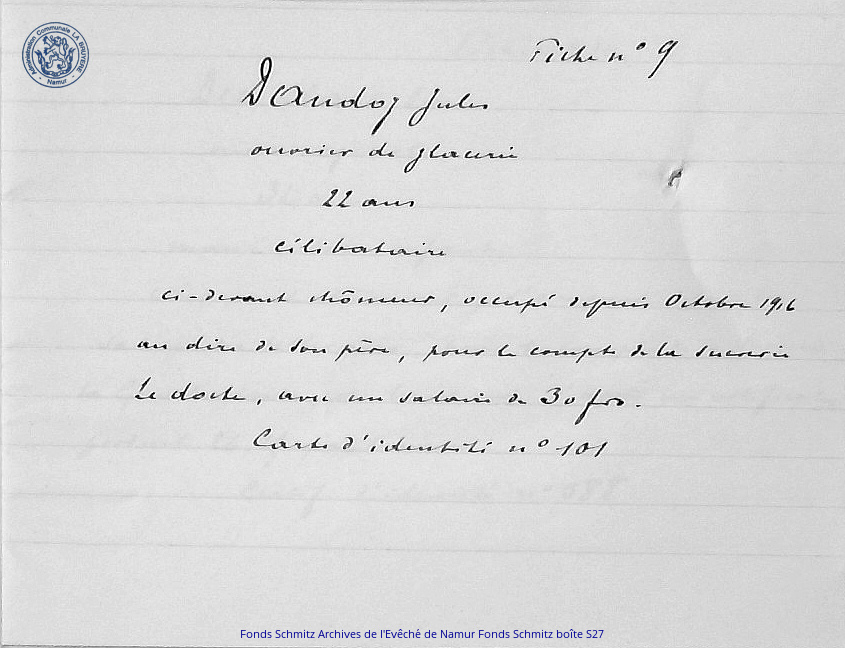 Administration Communale LA BRUYERE
- Namur -
Fiche n° 9
Dandoy Jules
ouvrier de glacerie
22 ans
célibataire
ci-devant chômeur, occupé depuis Octobre 1916
au dire de son père, pour le compte de la sucrerie
Le docte, avec un salaire de 30 frs.
Carte d'identité n° 101
Fonds Schmitz Archives de l'Evêché de Namur Fonds Schmitz boîte S27